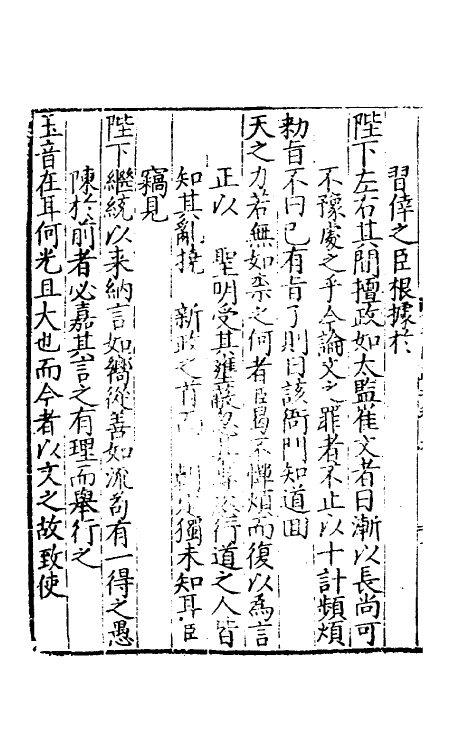 習倖之臣根據於
陛下左右其間擅政如太監崔文者日漸以長尚可
不豫處之乎今論文之罪者不止以十計頻煩
勑旨不曰已有旨了則曰該衙門知道回
天之力若無如柰之何者臣曷不憚煩而復以爲言
正以 聖明受其壅蔽 行道之人皆
知其亂撓 新政之首而 獨未知耳臣
竊見
陛下繼統以来納言如嚮從善如流苟有一得之愚
陳於前者必嘉其言之有理而舉行之
玉音在耳何光且大也而今者以文之故致使